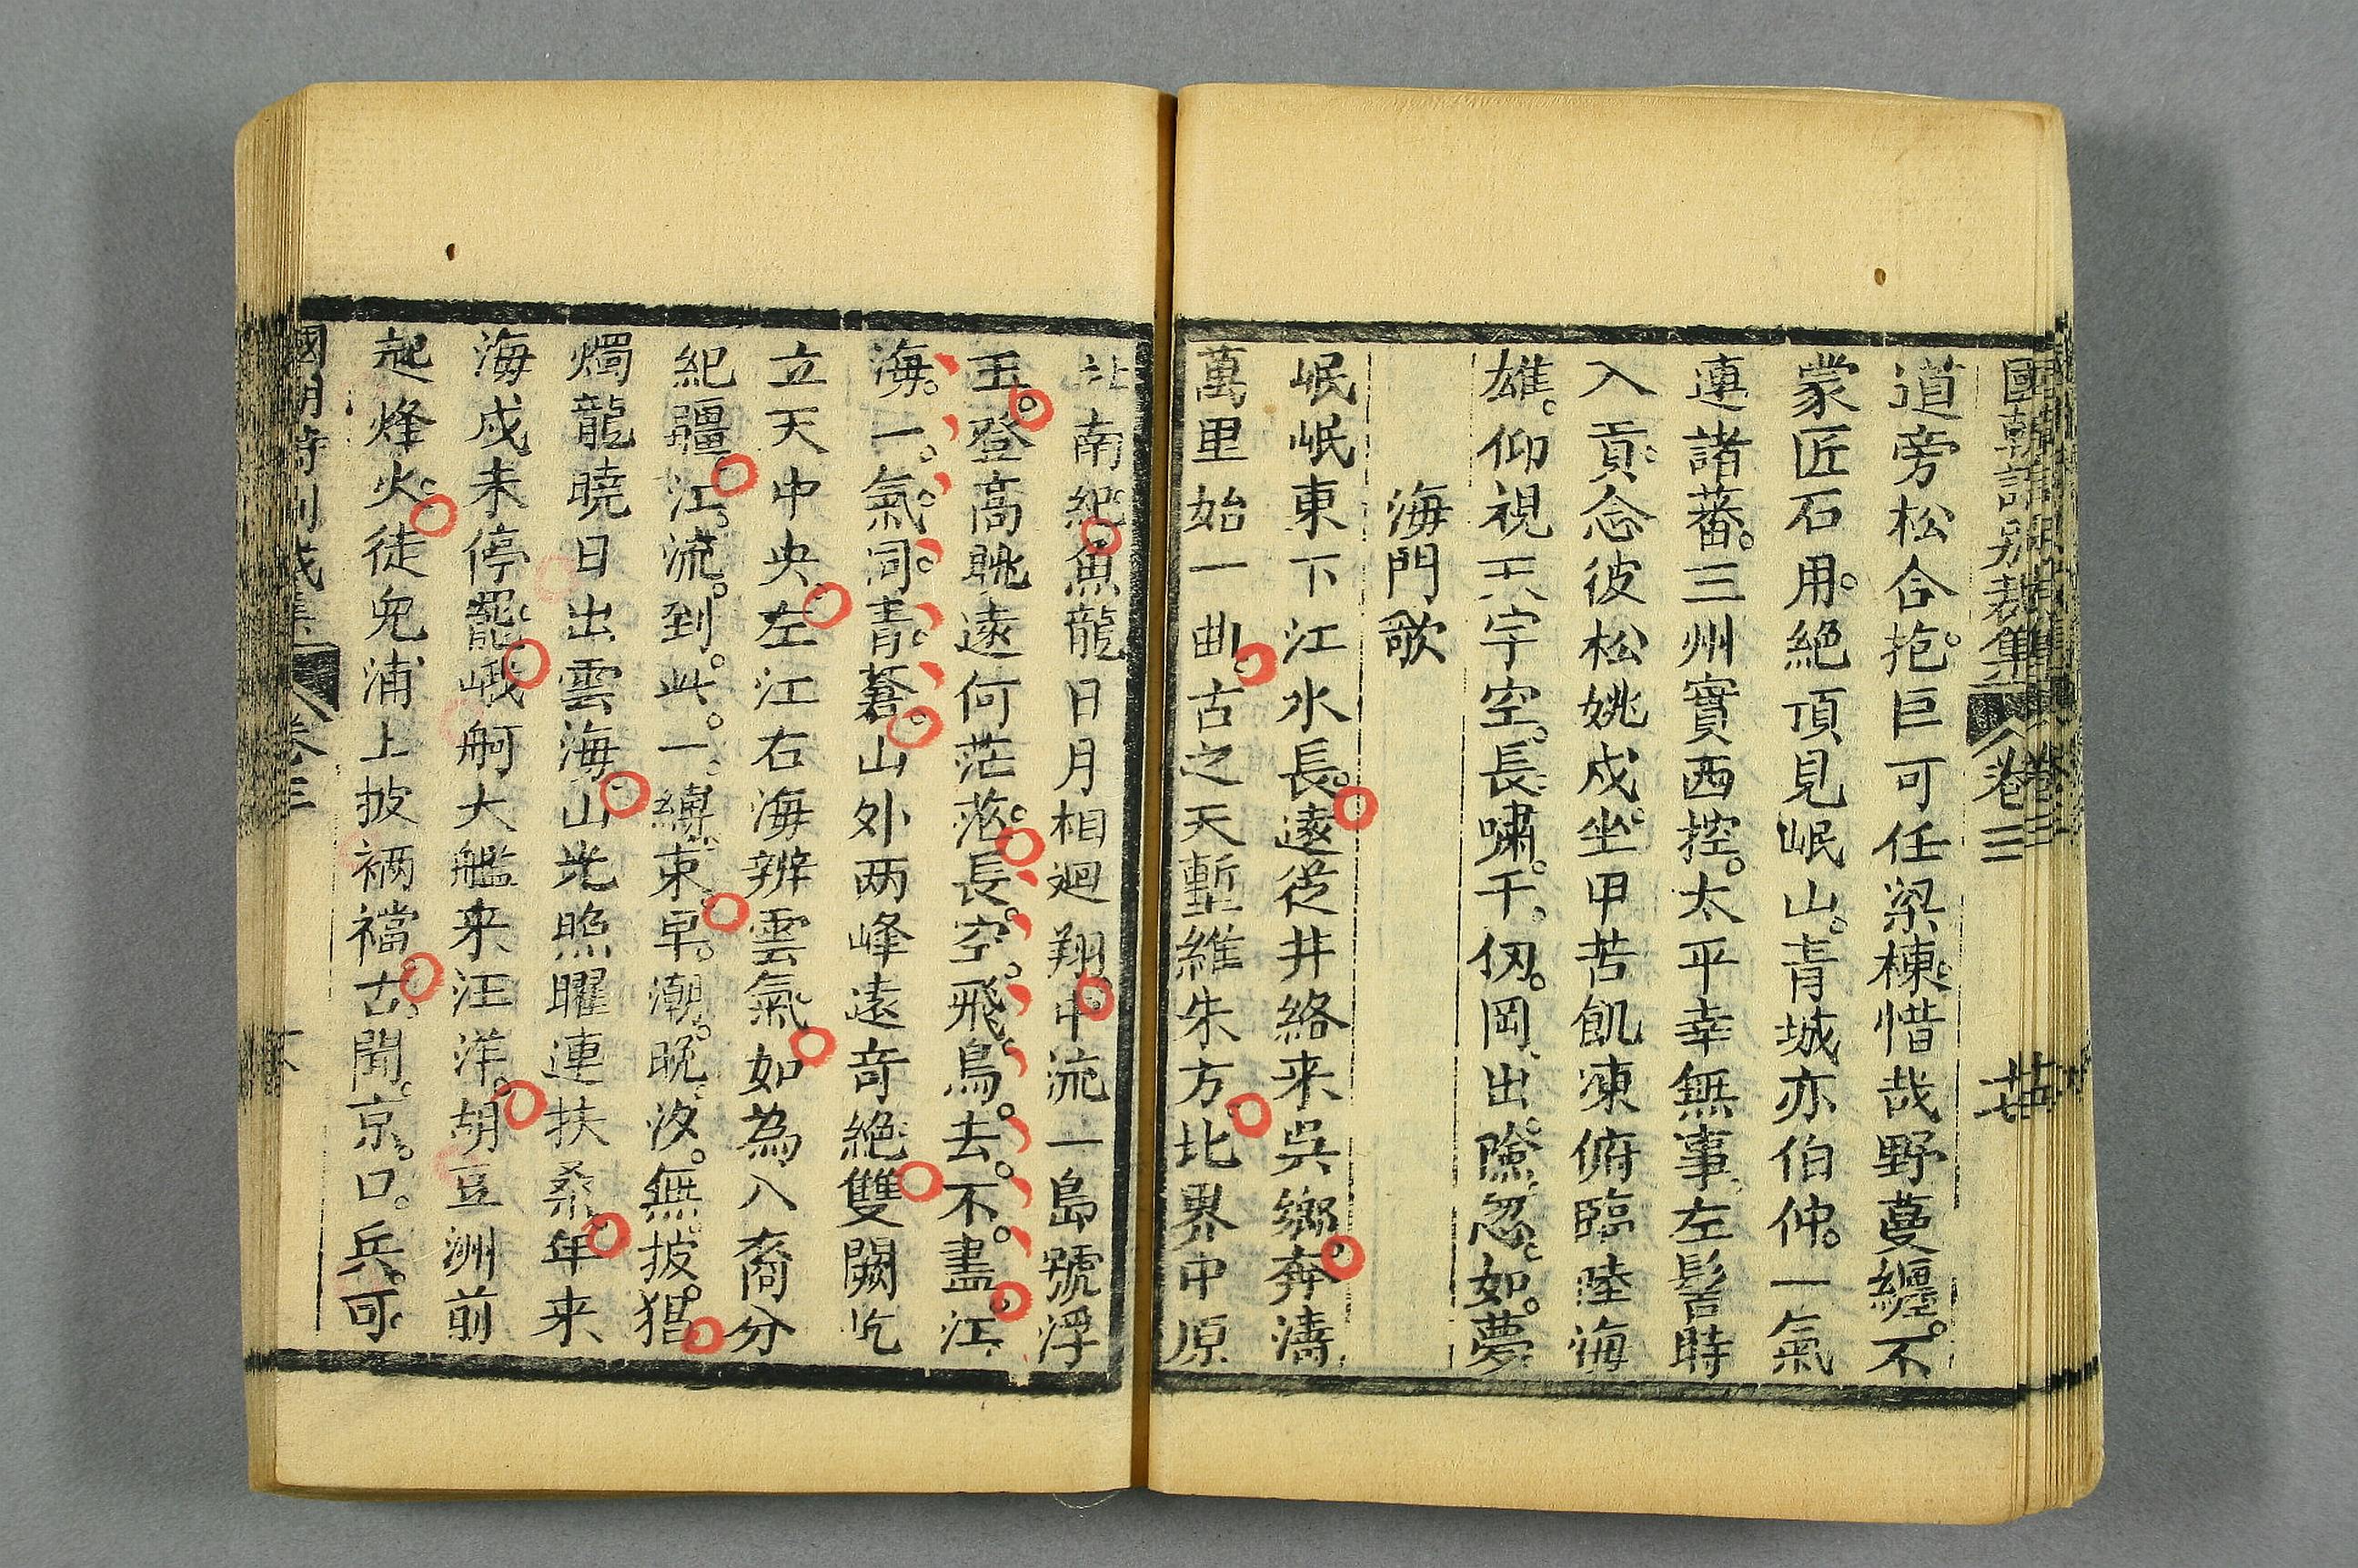 國朝詩別裁集 卷三 廿
道旁松合抱。巨可任梁棟。惜哉野蔓纏。不
蒙匠石用。絕頂見岷山。青城亦伯仲。一氣
連諸蕃。三州實西控。太平幸無事。左髻時
入貢。念彼松姚戍。坐甲苦飢凍。俯臨陸海
雄。仰視天宇空。長嘯千仞岡。出險忽如夢
海門歌
岷岷東下江水長。遠從井絡来吳鄉。奔濤
萬里始一曲。古之天塹維朱方。北界中原
壯南紀。魚龍日月相迴翔。中流一島號浮
玉。登高眺遠何茫茫。長空飛鳥去不盡。江
海一氣同青蒼。山外两峰遠奇絕。雙闕屹
立天中央。左江右海辨雲氣。如為八裔分
紀疆。江流到此一縛束。早潮晚汐無披猖。
燭龍曉日出雲海。山光照曜連扶桑。年来
海戍未停罷。峨舸大艦来汪洋。胡豆洲前
起烽火。徒兒浦上披裲襠。古聞京口兵可
國朝詩別裁集 卷三